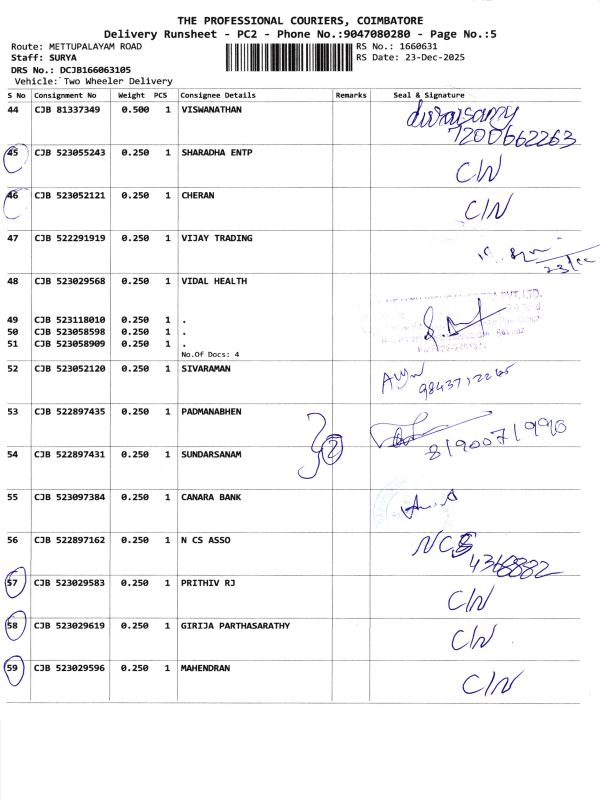 THE PROFESSIONAL COURIERS, COIMBATORE
Delivery Runsheet - PC2 - Phone No.:9047080280 - Page No.:5
Route: METTUPALAYAM ROAD RS No.: 1660631
Staff: SURYA RS Date: 23-Dec-2025
DRS No.: DCJB166063105
Vehicle: Two Wheeler Delivery
S No Consignment No Weight PCS Consignee Details Remarks Seal & Signature
44 CJB 81337349 0.500 1 VISWANATHAN
7200662263
45 CJB 523055243 0.250 1 SHARADHA ENTP C/N
46 CJB 523052121 0.250 1 CHERAN C/N
47 CJB 522291919 0.250 1 VIJAY TRADING
48 CJB 523029568 0.250 1 VIDAL HEALTH
PVT. LTD.
49 CJB 523118010 0.250 1 .
50 CJB 523058598 0.250 1 .
51 CJB 523058909 0.250 1 .
No.Of Docs: 4
52 CJB 523052120 0.250 1 SIVARAMAN
53 CJB 522897435 0.250 1 PADMANABHEN
2
54 CJB 522897431 0.250 1 SUNDARSANAM
55 CJB 523097384 0.250 1 CANARA BANK
56 CJB 522897162 0.250 1 N CS ASSO NCS
57 CJB 523029583 0.250 1 PRITHIV RJ C/N
58 CJB 523029619 0.250 1 GIRIJA PARTHASARATHY C/N
59 CJB 523029596 0.250 1 MAHENDRAN C/N